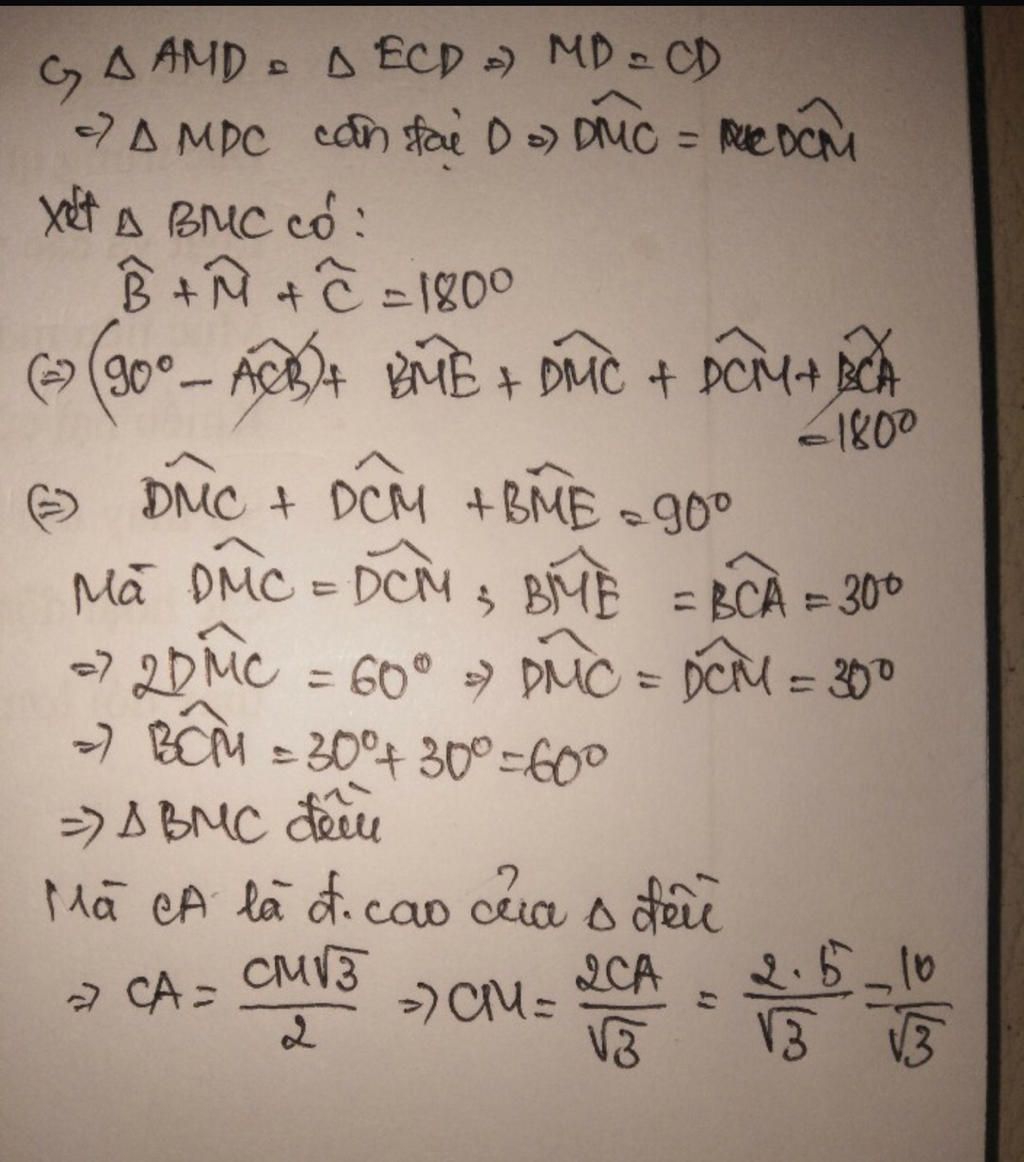 c, Δ AMD = Δ ECD => MD = CD
=> Δ MDC cân tại D => \widehat{DMC} = \widehat{DCM}
Xét Δ BMC có:
\hat{B} + \hat{M} + \hat{C} = 180°
(=) (90° - \widehat{ACB}) + \widehat{BME} + \widehat{DMC} + \widehat{DCM} + \widehat{BCA}
= 180°
(=) \widehat{DMC} + \widehat{DCM} + \widehat{BME} = 90°
Mà \widehat{DMC} = \widehat{DCM} ; \widehat{BME} = \widehat{BCA} = 30°
=> 2\widehat{DMC} = 60° => \widehat{DMC} = \widehat{DCM} = 30°
=> \widehat{BCM} = 30° + 30° = 60°
=> Δ BMC đều
Mà CA là đ.cao của Δ đều
=> CA = \frac{CM√3}{2} => CM = \frac{2CA}{√3} = \frac{2.5}{√3} = \frac{10}{√3}